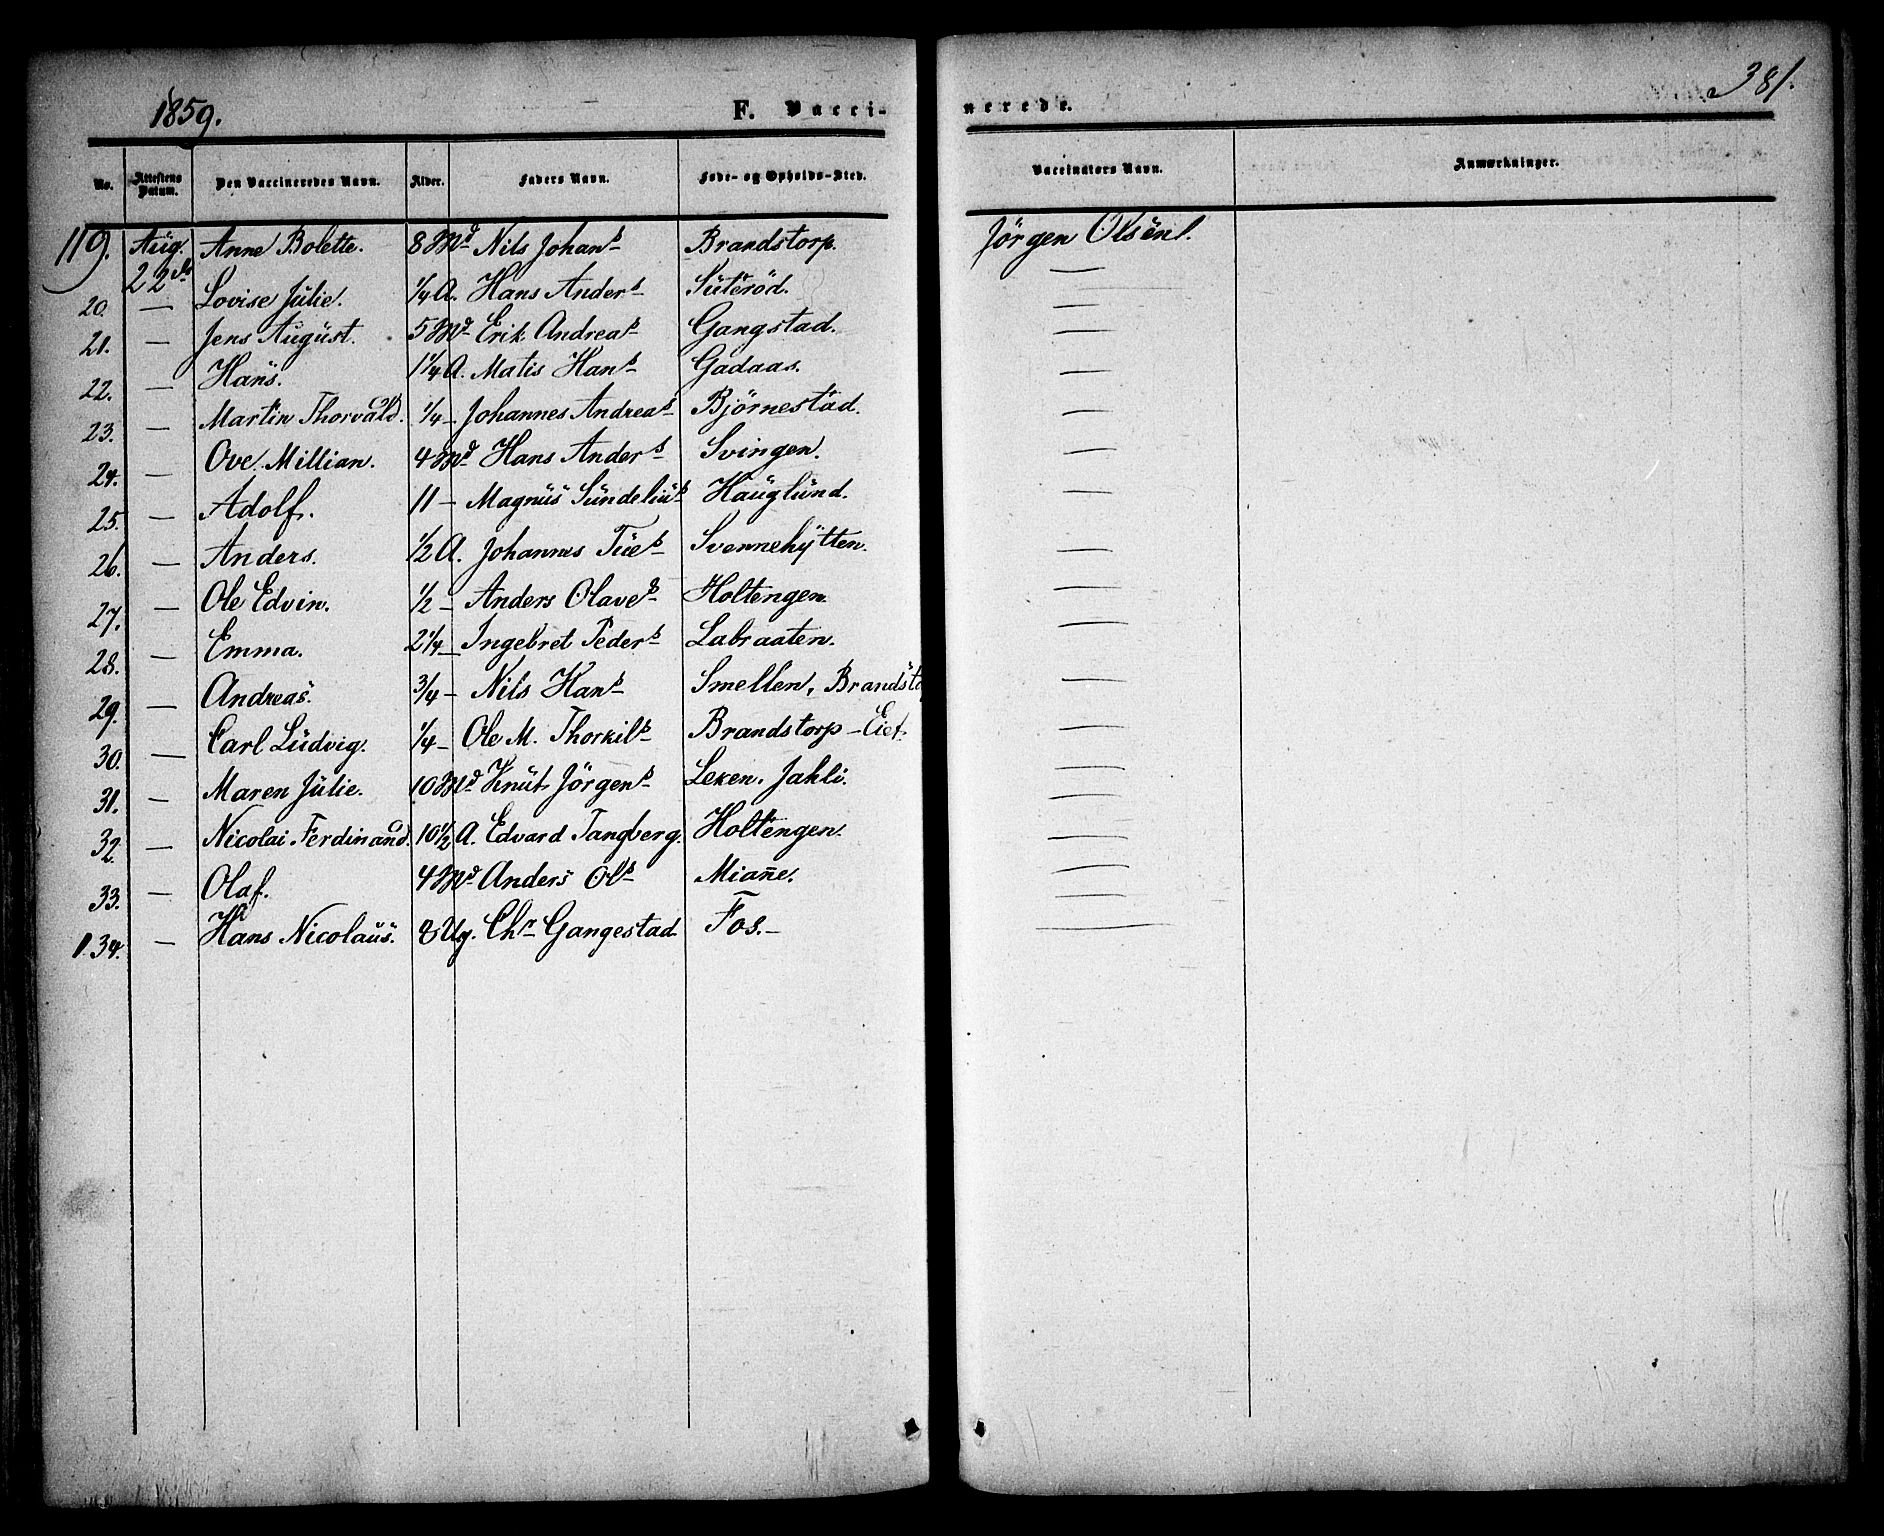 1859. F. Vacci- nerede. 381.
No. Attestens Datum. Den Vaccineredes Navn. Alder. Faders Navn. Føde- og Opholds-Sted. Vaccinators Navn. Anmærkninger.
119. Aug. 22de Anne Bolette. 8 Md Nils Johans Brandstorp. Jörgen Olsen.
20. — Lovise Julie. 1/4 A. Hans Anders Suteröd. —
21. — Jens August. 5 Md Erik Andreas Gangstad. —
22. — Hans. 1 1/4 A. Matis Hans Gadaas. —
23. — Martin Thorvald. 1/4 — Johannes Andreas Bjørnestad. —
24. — Ove Millian. 4 Md Hans Anders Svingen. —
25. — Adolf. 11 — Magnus Sundelius Hauglund. —
26. — Anders. 1/2 A. Johannes Tues Svennehytten. —
27. — Ole Edvin. 1/2 — Anders Olaves Holtengen. —
28. — Emma. 2 1/4 — Ingebret Peders Labraaten. —
29. — Andreas. 3/4 — Nils Hans Smellen, Brandsto —
30. — Carl Ludvig. 1/4 — Ole M. Thorkils Brandstorp-Eiet. —
31. — Maren Julie. 10 Md Knut Jörgens Leken. Jahli. —
32. — Nicolai Ferdinand. 10 1/2 A. Edvard Tangberg. Holtengen. —
33. — Olaf. 4 Md Anders Ols Mianne. —
134. — Hans Nicolaus. 8 Ug. Chr Gangestad Fos. — —